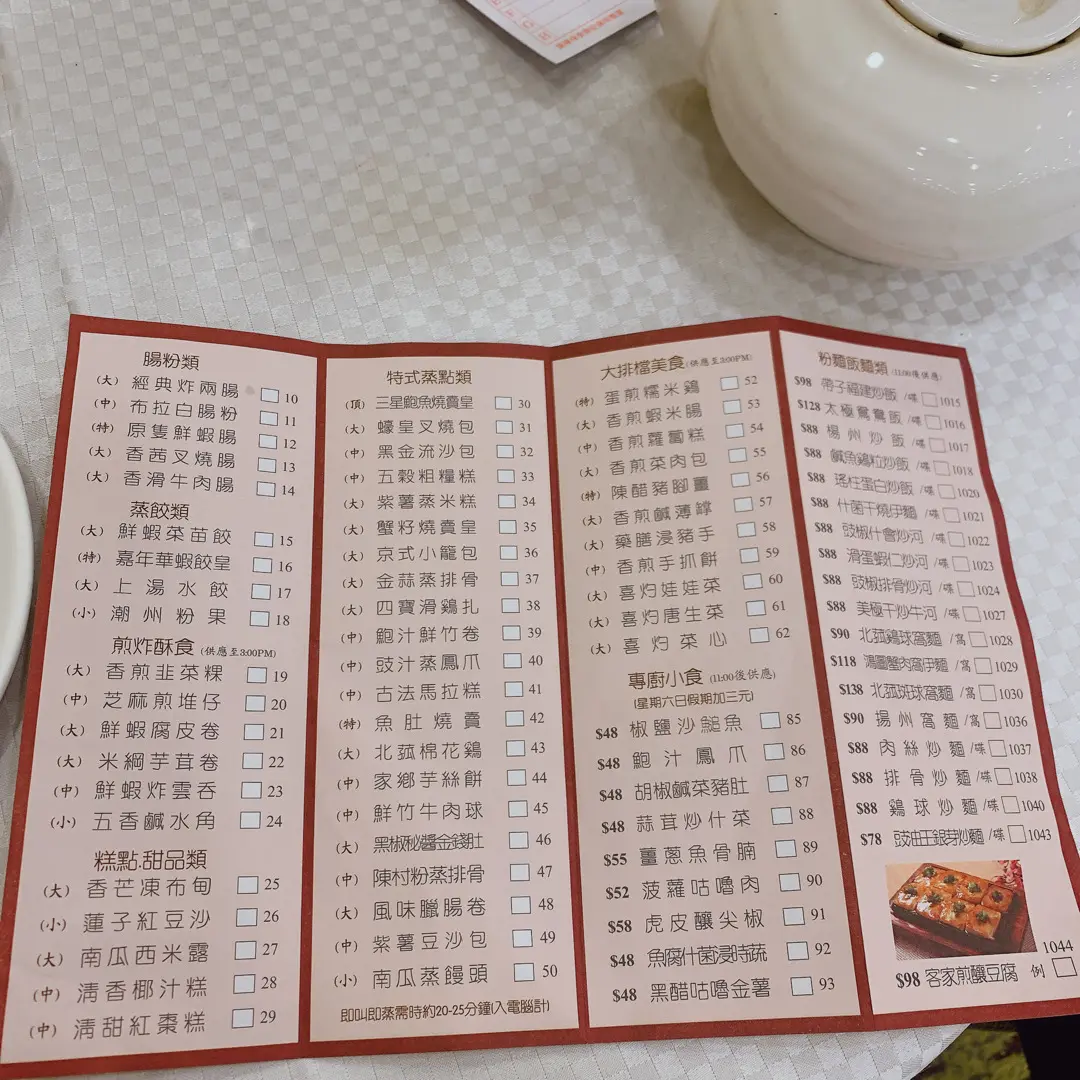 腸粉類
(大) 經典炸兩腸 10
(中) 布拉白腸粉 11
(特) 原隻鮮蝦腸 12
(大) 香茜叉燒腸 13
(大) 香滑牛肉腸 14
蒸餃類
(大) 鮮蝦菜苗餃 15
(特) 嘉年華蝦餃皇 16
(大) 上湯水餃 17
(小) 潮州粉果 18
煎炸酥食 (供應至3:00PM)
(大) 香煎韭菜粿 19
(中) 芝麻煎堆仔 20
(大) 鮮蝦腐皮卷 21
(大) 米網芋茸卷 22
(中) 鮮蝦炸雲吞 23
(小) 五香鹹水角 24
糕點.甜品類
(大) 香芒凍布甸 25
(小) 蓮子紅豆沙 26
(大) 南瓜西米露 27
(中) 清香椰汁糕 28
(中) 清甜紅棗糕 29
特式蒸點類
(頂) 三星鮑魚燒賣皇 30
(大) 蠔皇叉燒包 31
(中) 黑金流沙包 32
(中) 五穀粗糧糕 33
(大) 紫薯蒸米糕 34
(大) 蟹籽燒賣皇 35
(大) 京式小籠包 36
(大) 金蒜蒸排骨 37
(大) 四寶滑鷄扎 38
(中) 鮑汁鮮竹卷 39
(中) 豉汁蒸鳳爪 40
(中) 古法馬拉糕 41
(特) 魚肚燒賣 42
(大) 北菰棉花鷄 43
(中) 家鄉芋絲餅 44
(中) 鮮竹牛肉球 45
(大) 黑椒秘醬金錢肚 46
(中) 陳村粉蒸排骨 47
(大) 風味臘腸卷 48
(中) 紫薯豆沙包 49
(小) 南瓜蒸饅頭 50
即叫即蒸需時約20-25分鐘(入電腦計)
大排檔美食 (供應至3:00PM)
(特) 蛋煎糯米鷄 52
(大) 香煎蝦米腸 53
(中) 香煎蘿蔔糕 54
(大) 香煎菜肉包 55
(特) 陳醋豬腳薑 56
(大) 香煎鹹薄罉 57
(大) 藥膳浸豬手 58
(中) 香煎手抓餅 59
(大) 喜灼娃娃菜 60
(大) 喜灼唐生菜 61
(大) 喜灼菜心 62
專廚小食 (11:00後供應)
(星期六日假期加三元)
$48 椒鹽沙鎚魚 85
$48 鮑汁鳳爪 86
$48 胡椒鹹菜豬肚 87
$48 蒜茸炒什菜 88
$55 薑蔥魚骨腩 89
$52 菠蘿咕嚕肉 90
$58 虎皮釀尖椒 91
$48 魚腐什菌浸時蔬 92
$48 黑醋咕嚕金薯 93
粉麵飯麵類 (11:00後供應)
$98 帶子福建炒飯 /碟 1015
$128 太極鴛鴦飯 /碟 1016
$88 楊州炒飯 /碟 1017
$88 鹹魚鷄粒炒飯 /碟 1018
$88 瑤柱蛋白炒飯 /碟 1020
$88 什菌干燒伊麵 /碟 1021
$88 豉椒什會炒河 /碟 1022
$88 滑蛋蝦仁炒河 /碟 1023
$88 豉椒排骨炒河 /碟 1024
$88 美極干炒牛河 /碟 1027
$90 北菰鷄球窩麵 /窩 1028
$118 鴻圖蟹肉窩伊麵 /窩 1029
$138 北菰斑球窩麵 /窩 1030
$90 揚州窩麵 /窩 1036
$88 肉絲炒麵 /碟 1037
$88 排骨炒麵 /碟 1038
$88 鷄球炒麵 /碟 1040
$78 豉油王銀芽炒麵 /碟 1043
1044
$98 客家煎釀豆腐 例